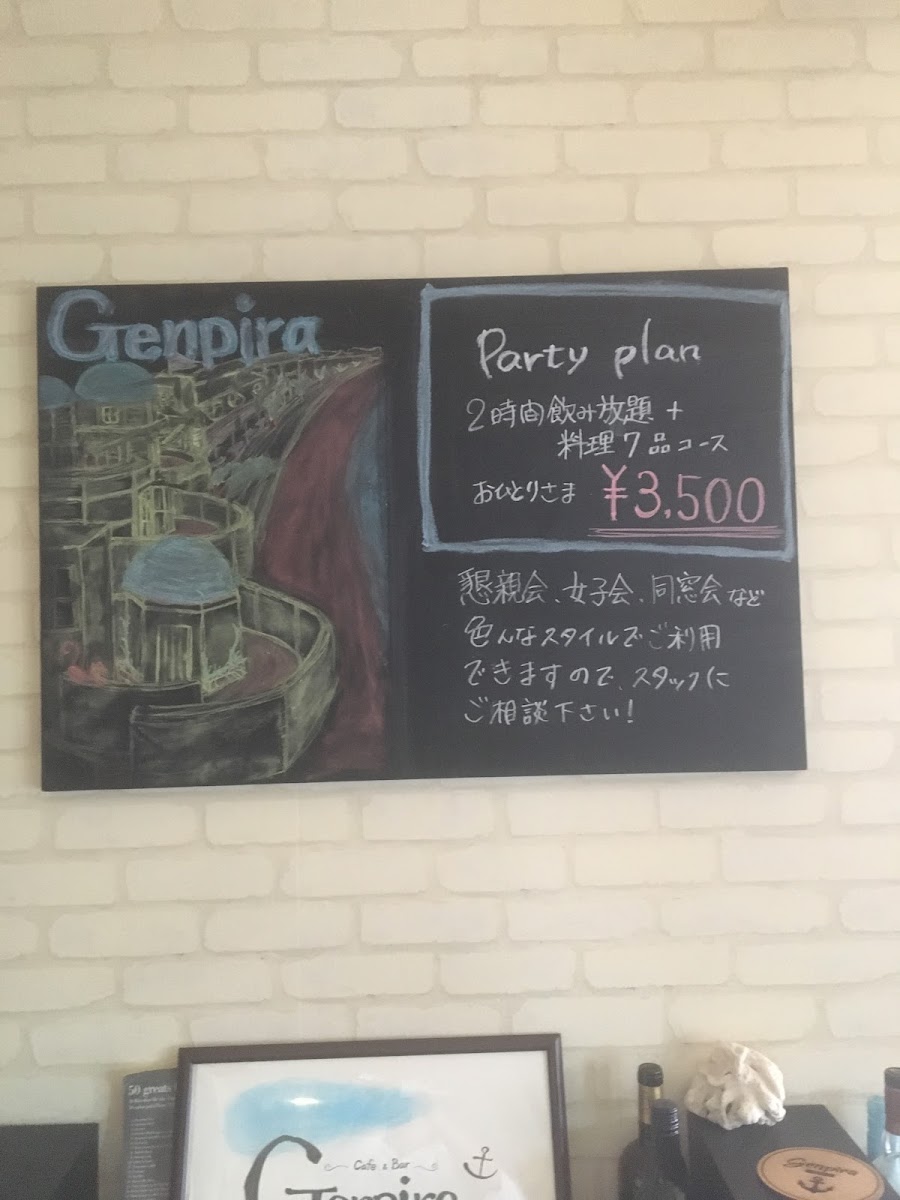 Genpira
Party plan
2時間飲み放題+
料理7品コース
おひとりさま ¥3,500
懇親会、女子会、同窓会など
色んなスタイルでご利用
できますので、スタッフに
ご相談下さい!
50 greats
Cafe & Bar
Genpira
Genpira